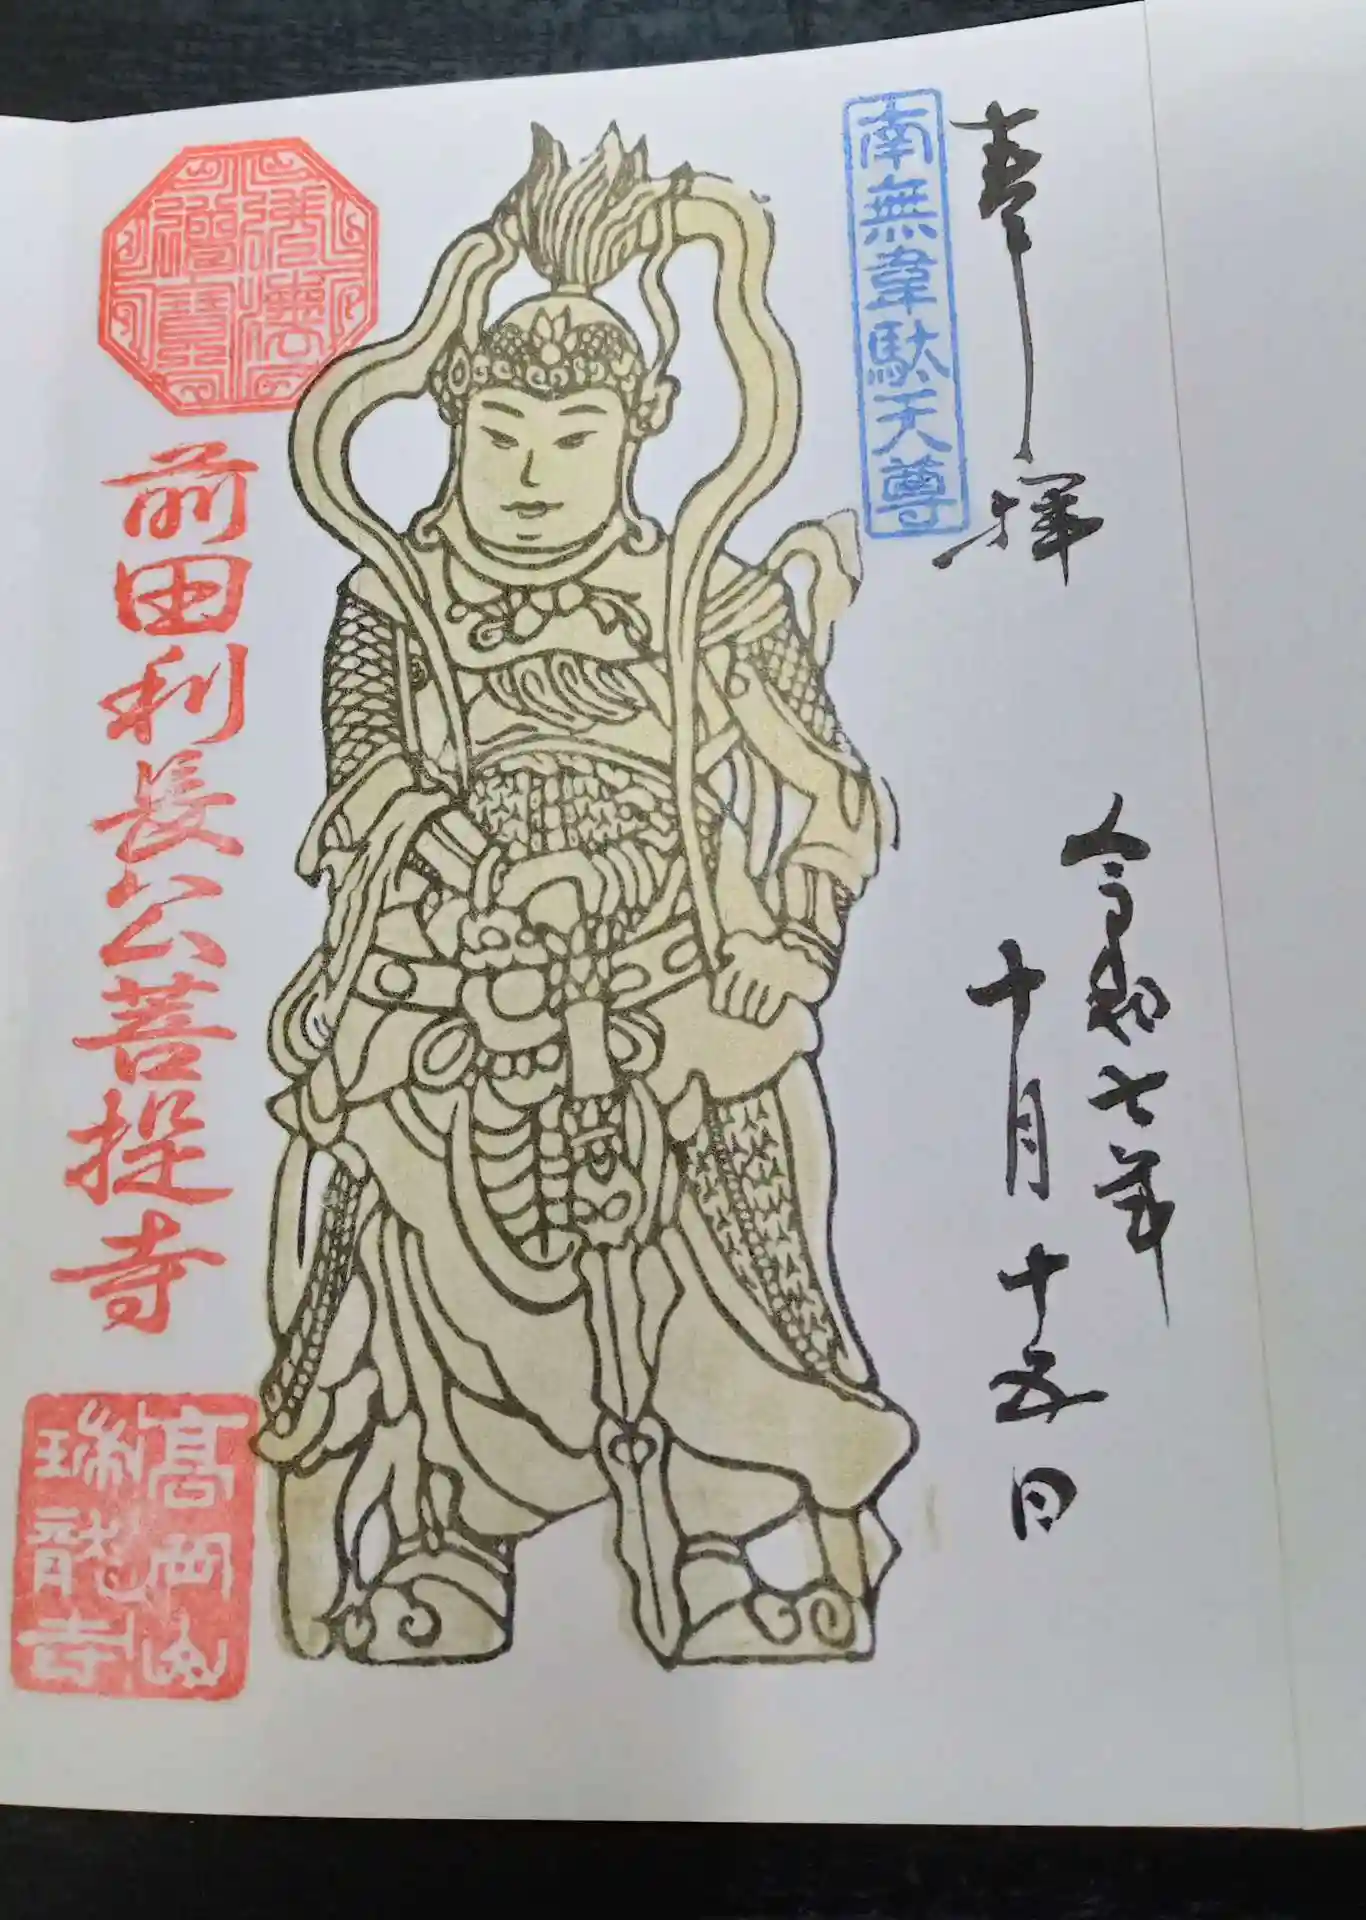 奉拝
南無韋駄天尊
令和七年
十月十五日
前田利長公菩提寺
高岡山
瑞龍寺